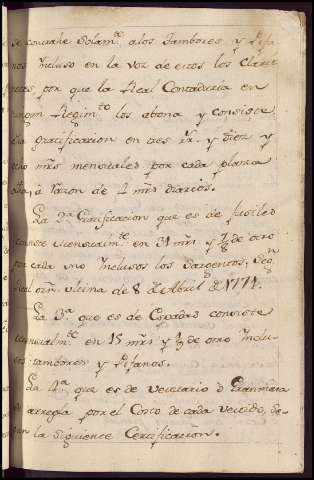 se contrahe Solam.te alos Tambores, y Pifa
nos Incluso en la voz de estos los Clari
netes, por que la Real Contaduria en
ningun Regim.to los abona, y consiste
dha gratificacion en tres r.s y diez y
ocho mrs mensuales por cada plaza
dha, à razon de 4 mrs diarios.
La 2.a Gratificacion que es de fusiles
consiste mensualm.te en 31 mrs y 7/8 de otro
por cada uno Inclusos los Sargentos, Seg.n
Real orn. ultima de 8 de Abril de 1774.
La 3.a que es de Espadas consiste
mensualm.te en 15 mrs y 1/2 de otro Inclu
sos tambores y Pifanos.
La 4.a que es de vestuario ô Granmasa
se arregla por el Costo de cada vestido, se-
gun la siguiente Certificacion.